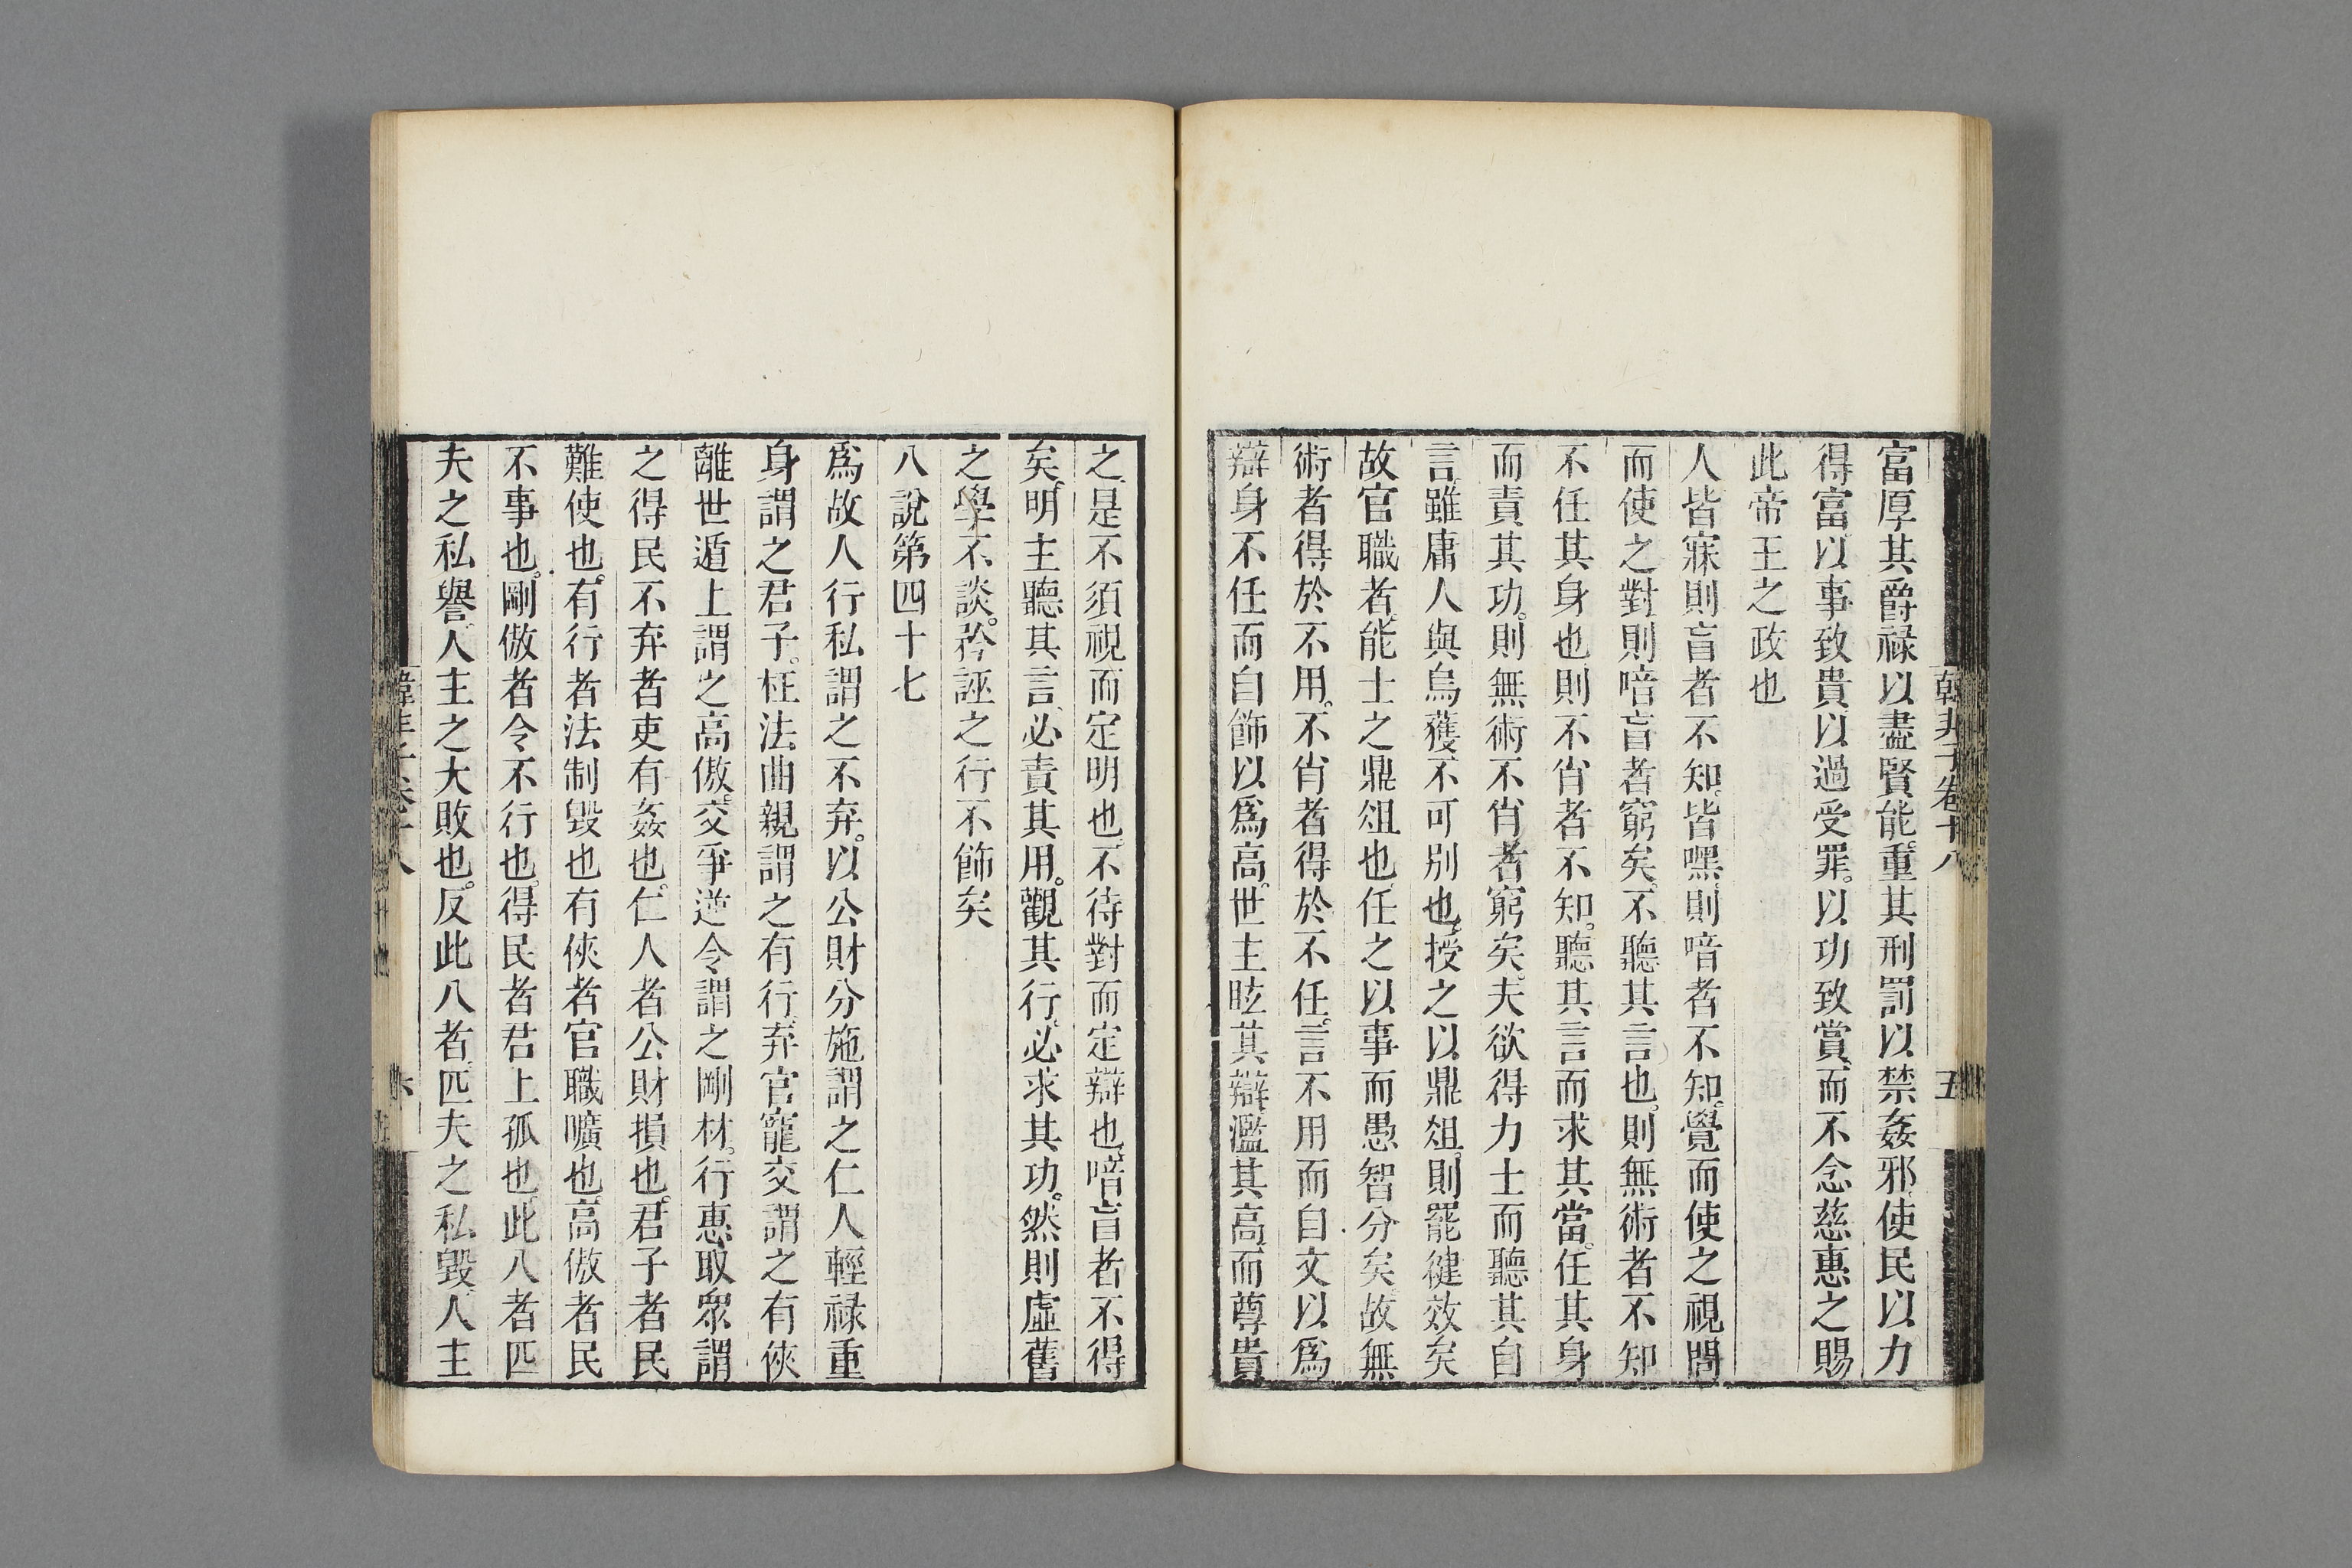 韓非子卷十八
五
富厚其爵祿以盡賢能重其刑罰以禁姦邪使民以力
得富以事致貴以過受罪以功致賞而不念慈惠之賜
此帝王之政也
人皆寐則盲者不知皆嘿則喑者不知覺而使之視問
而使之對則喑盲者窮矣不聽其言也則無術者不知
不任其身也則不肖者不知聽其言而求其當任其身
而責其功則無術不肖者窮矣夫欲得力士而聽其自
言雖庸人與烏獲不可別也授之以鼎俎則罷健效矣
故官職者能士之鼎俎也任之以事而愚智分矣故無
術者得於不用不肖者得於不任言不用而自文以爲
辯身不任而自飾以爲高世主眩其辯濫其高而尊貴
之是不須視而定明也不待對而定辯也喑盲者不得
矣明主聽其言必責其用觀其行必求其功然則虛舊
之學不談矜誣之行不飾矣
八說第四十七
爲故人行私謂之不弃以公財分施謂之仁人輕祿重
身謂之君子枉法曲親謂之有行弃官寵交謂之有俠
離世遁上謂之高傲交爭逆令謂之剛材行惠取眾謂
之得民不弃者吏有姦也仁人者公財損也君子者民
難使也有行者法制毀也有俠者官職曠也高傲者民
不事也剛傲者令不行也得民者君上孤也此八者匹
夫之私譽人主之大敗也反此八者匹夫之私毀人主
韓非子卷十八
六